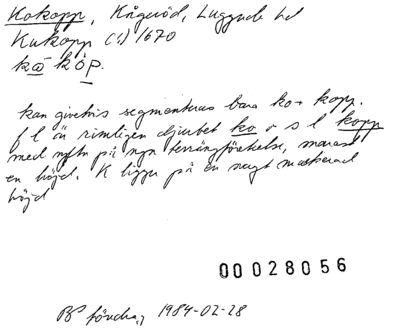 Kokopp, Kågeröd, Luggude hd
Kukopp (:) 1670
kå köp.
kan givetvis segmenteras bara ko + kopp.
f l är rimligen djurbet ko o s l kopp
med syftn på ngn terrängföreteelse, snarast
en höjd. K ligger på en svagt markerad
höjd
00028056
1984-02-28